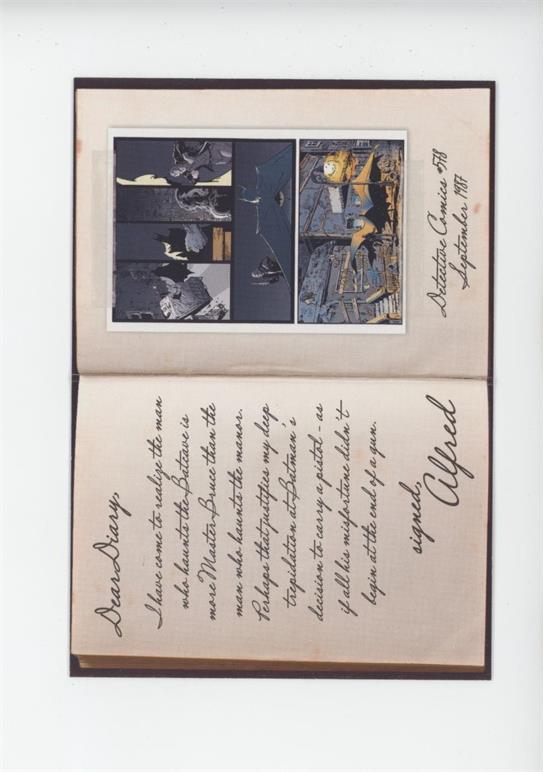 Dear Diary,
I have come to realize the man
who haunts the Batcave is
more Master Bruce than the
man who haunts the manor.
Perhaps that justifies my deep
trepidation at Batman's
decision to carry a pistol - as
if all his misfortune didn't
begin at the end of a gun.
signed,
Alfred
Detective Comics #578
September 1987